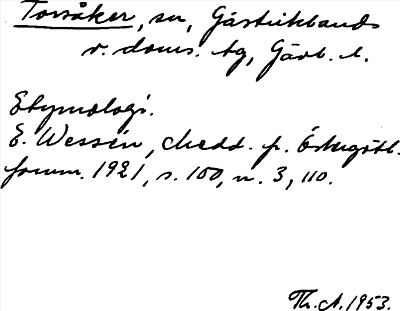 Torsåker, sn, Gästriklands
v. doms. tg, Gävl. l.
Etymologi.
E. Wessén, Medd. fr. Östergötl.
fornm. 1921, s. 100, n. 3, 110.
Th. A. 1953.